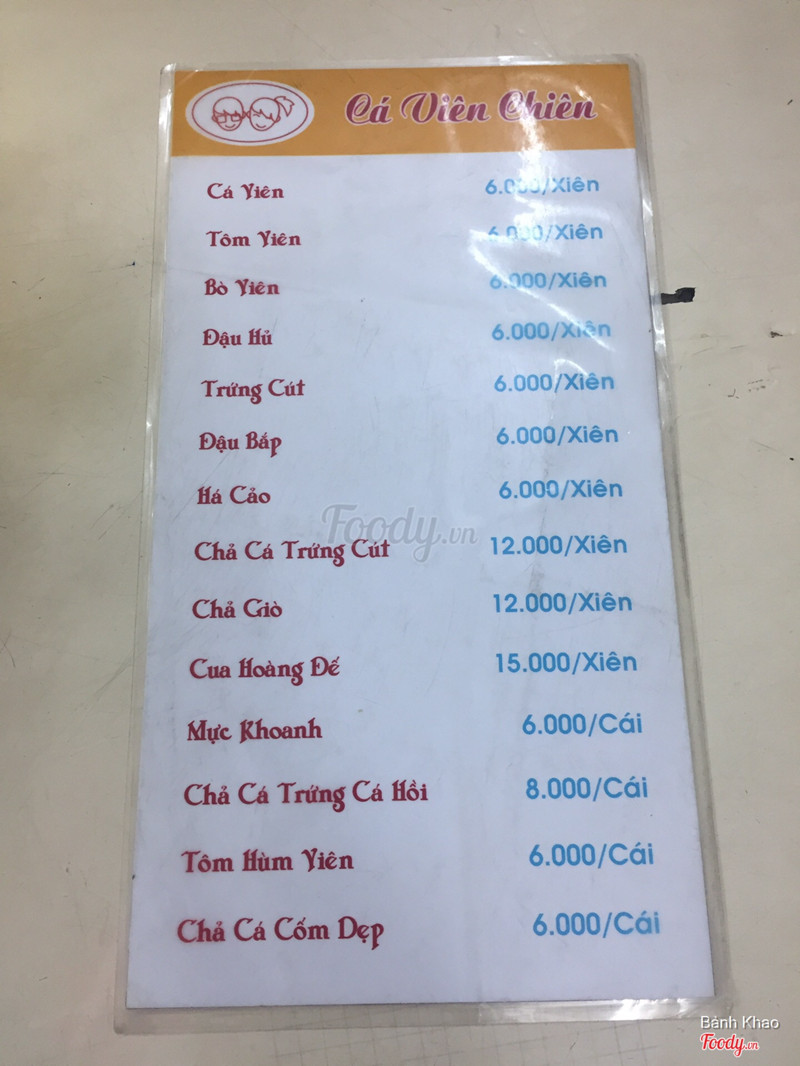 Cá Viên Chiên
Cá Viên 6.000/Xiên
Tôm Viên 6.000/Xiên
Bò Viên 6.000/Xiên
Đậu Hủ 6.000/Xiên
Trứng Cút 6.000/Xiên
Đậu Bắp 6.000/Xiên
Há Cảo 6.000/Xiên
Foody.vn
Chả Cá Trứng Cút 12.000/Xiên
Chả Giò 12.000/Xiên
Cua Hoàng Đế 15.000/Xiên
Mực Khoanh 6.000/Cái
Chả Cá Trứng Cá Hồi 8.000/Cái
Tôm Hùm Viên 6.000/Cái
Chả Cá Cốm Dẹp 6.000/Cái
Bánh Khao
Foody.vn